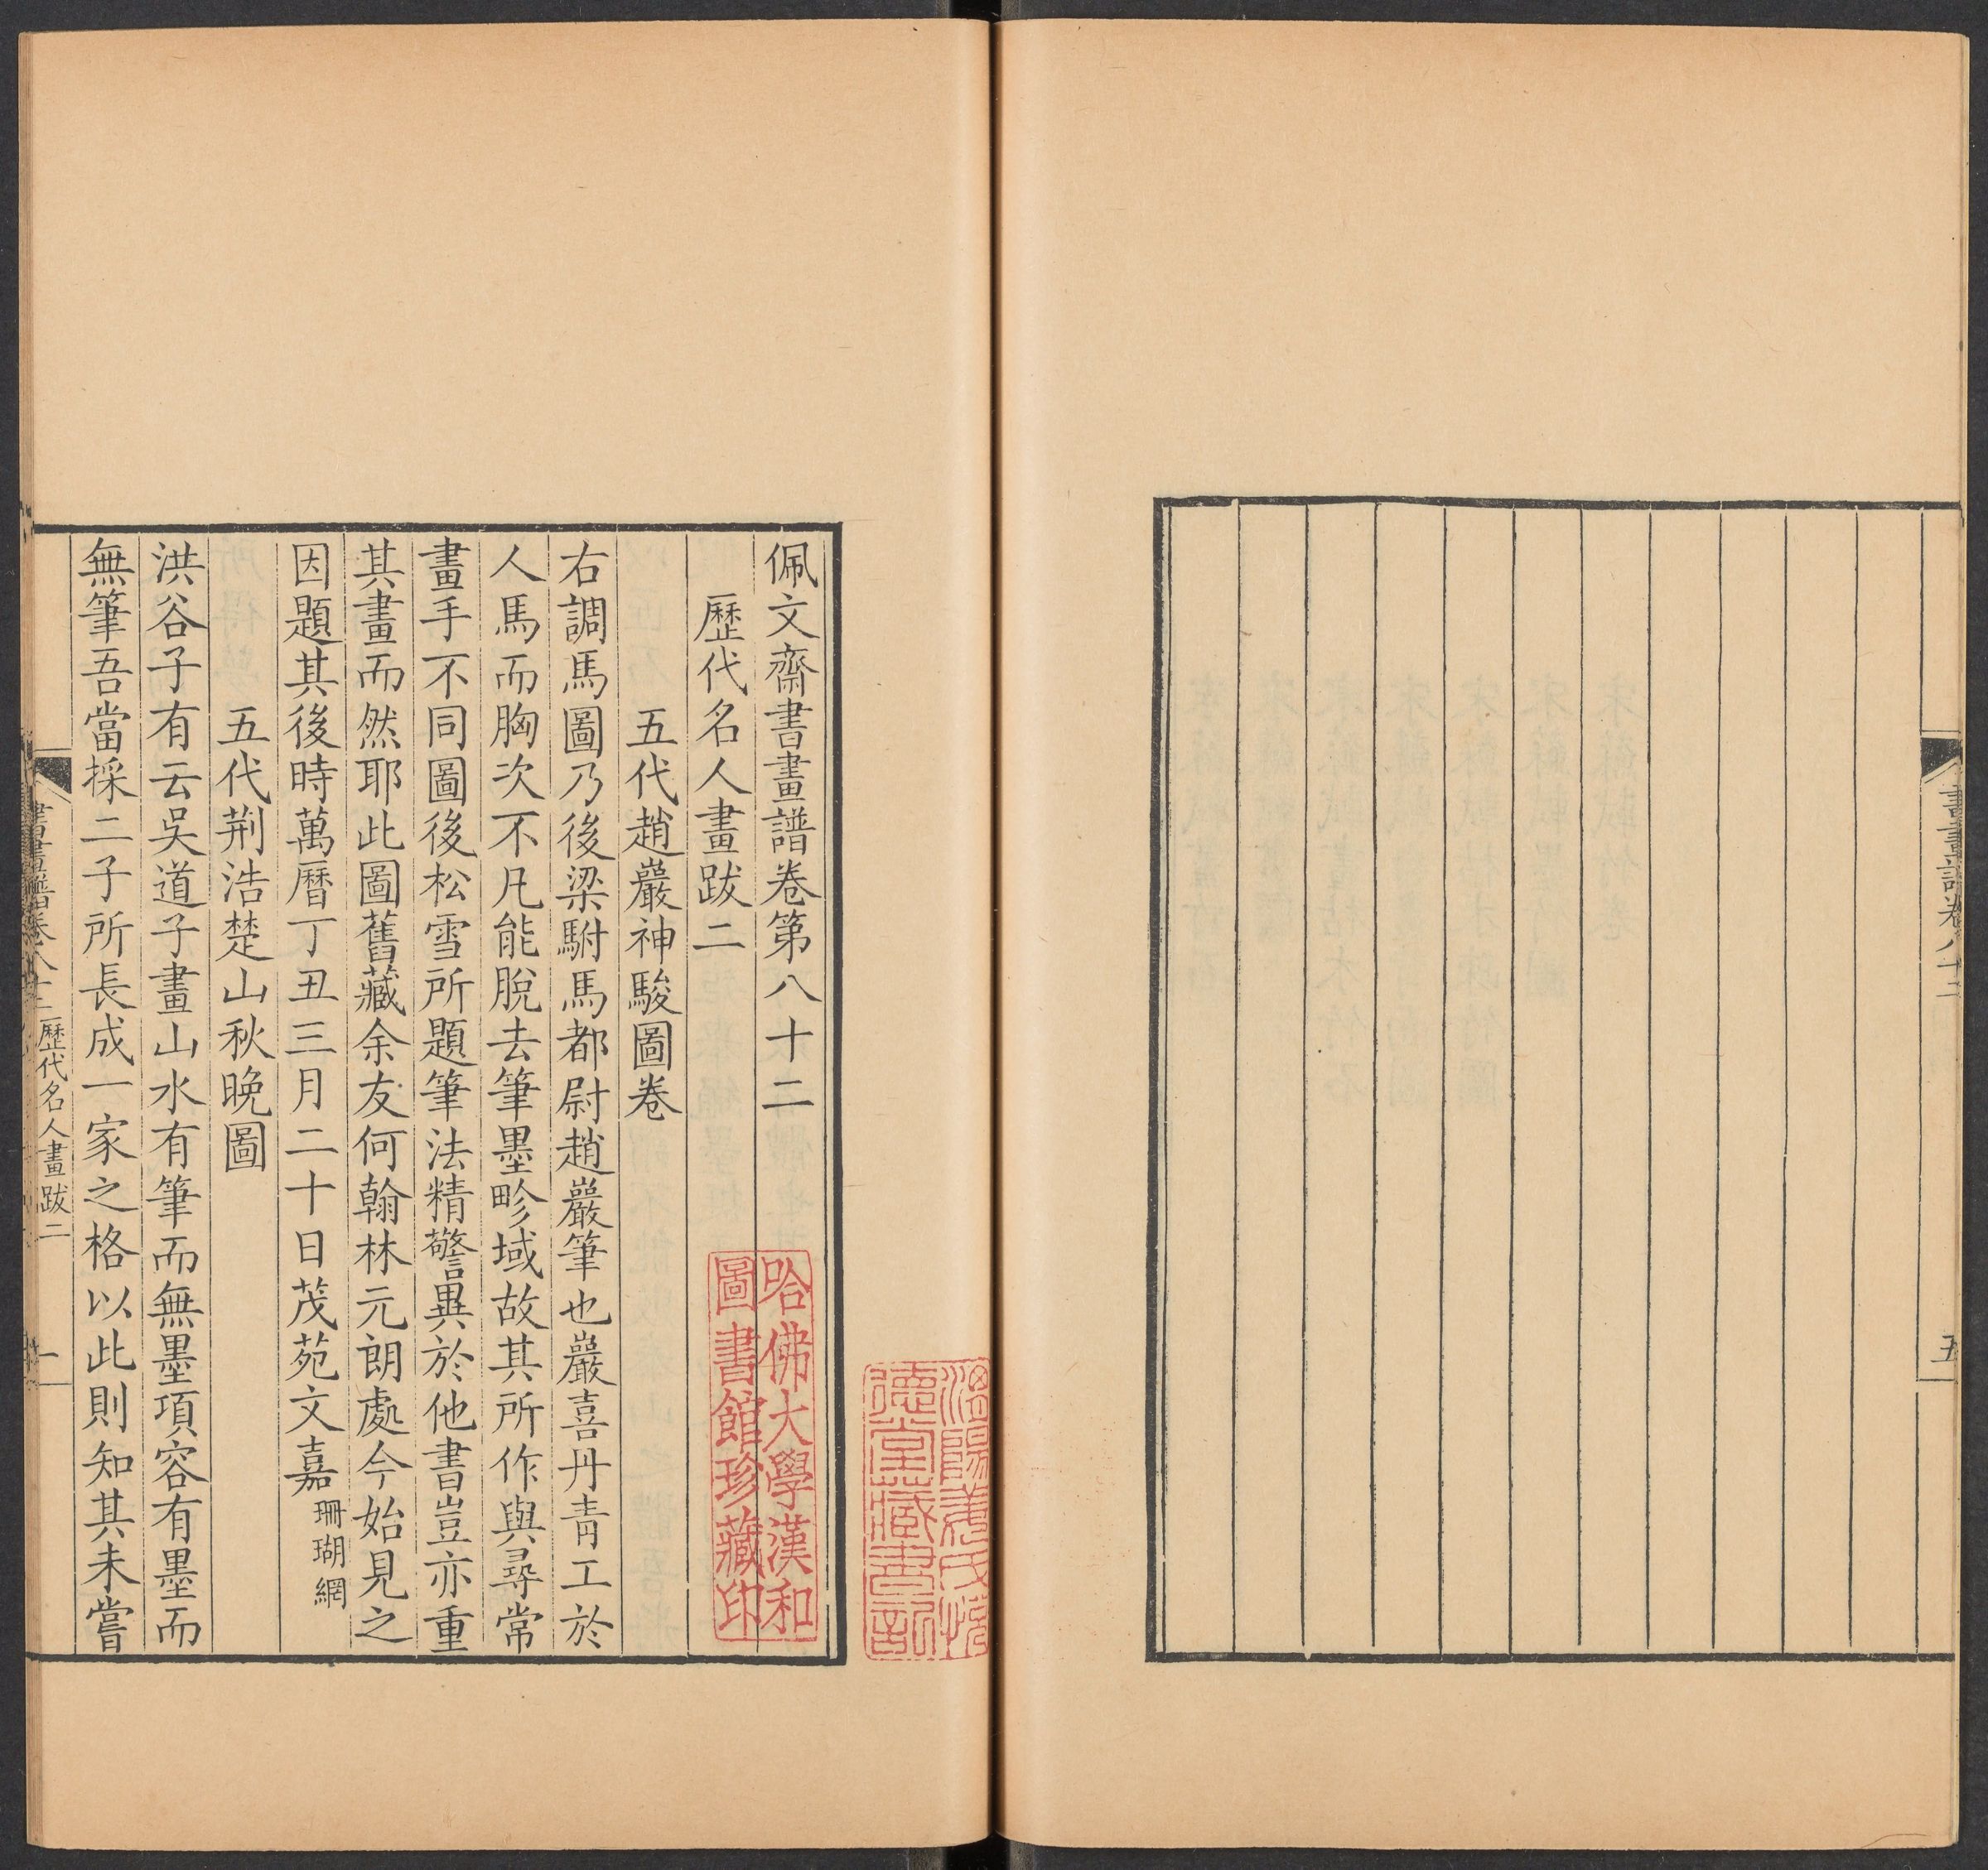 書畫譜卷八十二
五
佩文齋書畫譜卷第八十二
歷代名人畫跋二
五代趙巖神駿圖卷
右調馬圖乃後梁駙馬都尉趙巖筆也巖喜丹青工於
人馬而胸次不凡能脫去筆墨畛域故其所作與尋常
畫手不同圖後松雪所題筆法精警異於他書豈亦重
其畫而然耶此圖舊藏余友何翰林元朗處今始見之
因題其後時萬曆丁丑三月二十日茂苑文嘉珊瑚網
五代荆浩楚山秋晚圖
洪谷子有云吳道子畫山水有筆而無墨項容有墨而
無筆吾當採二子所長成一家之格以此則知其未嘗
書畫譜卷八十二 歷代名人畫跋二 一
哈佛大學漢和
圖書館珍藏印
德堂藏書記